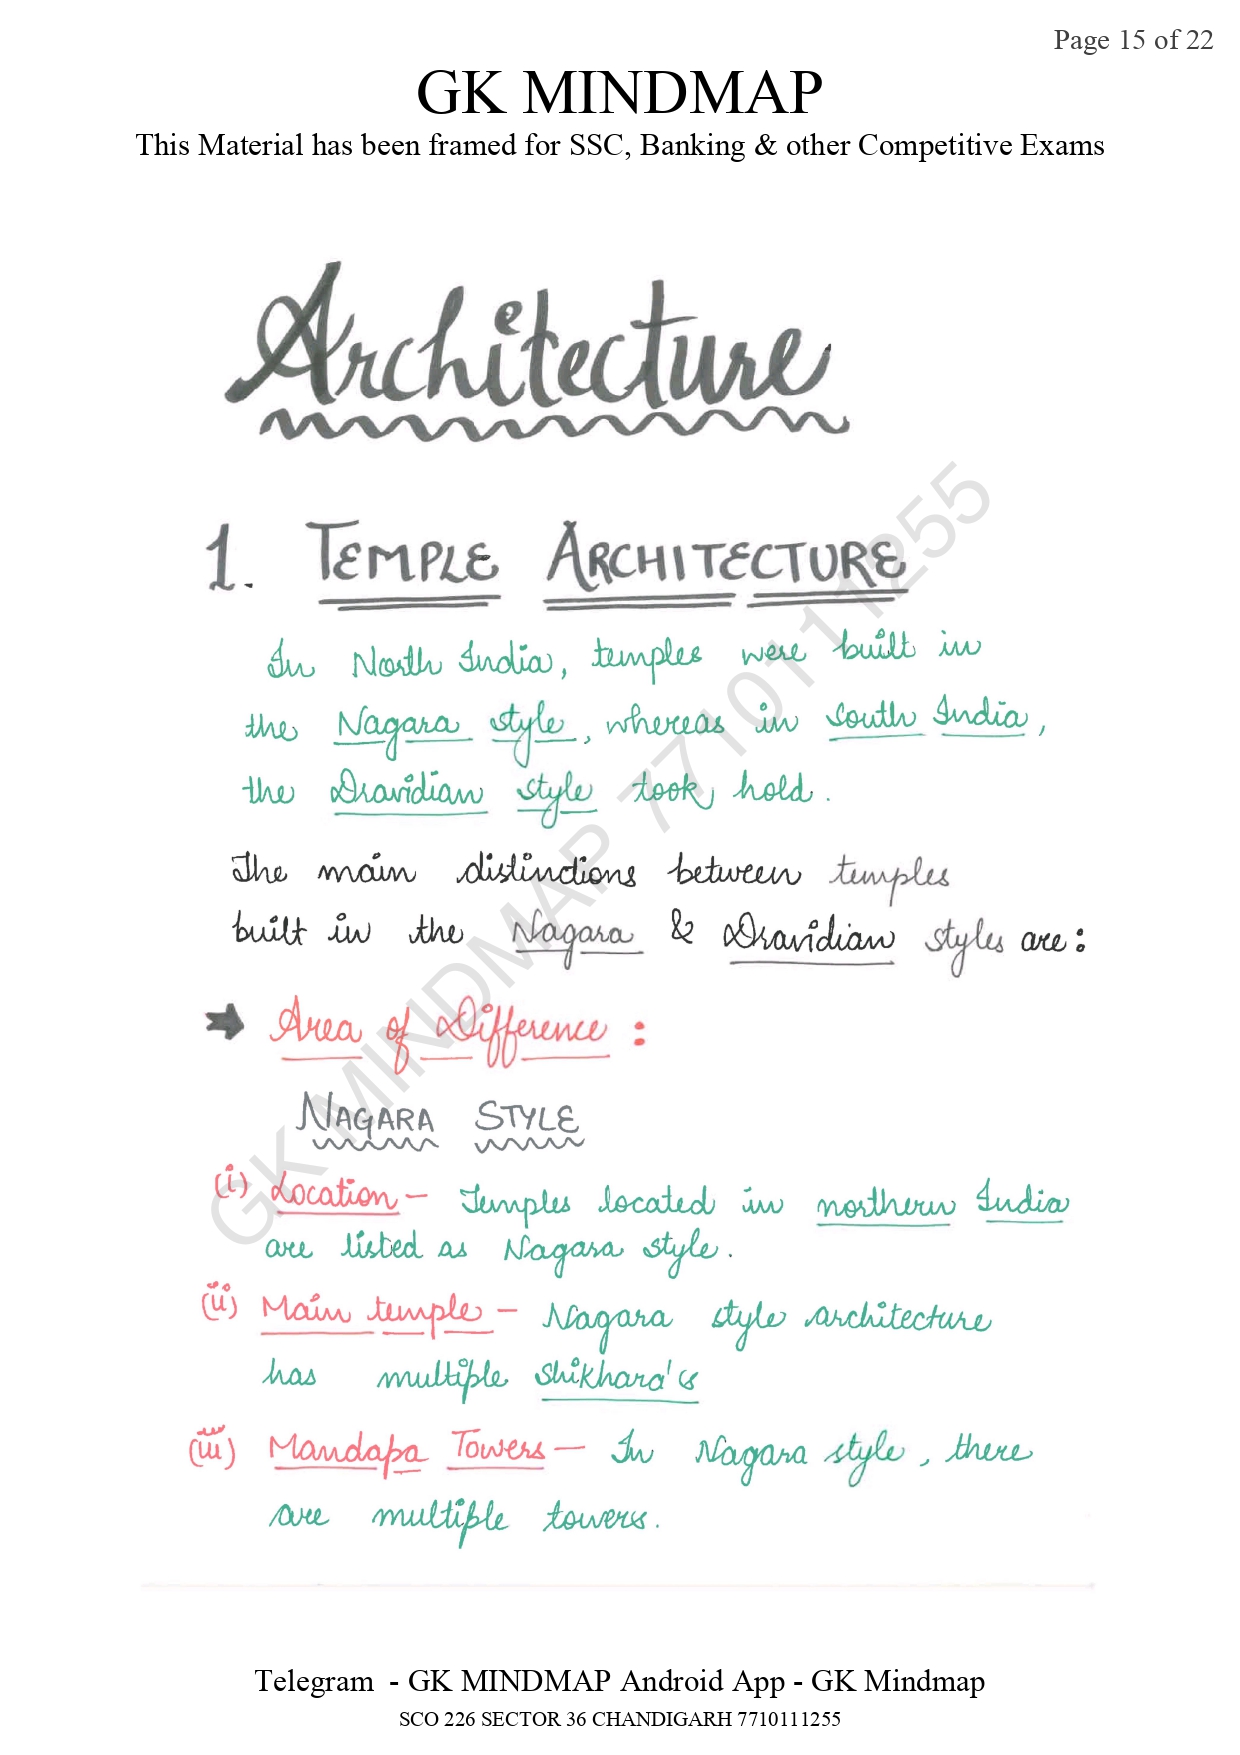 Page 15 of 22
GK MINDMAP
This Material has been framed for SSC, Banking & other Competitive Exams
Architecture
1. TEMPLE ARCHITECTURE
In North India, temples were built in
the Nagara style, whereas in south India,
the Dravidian style took hold.
The main distinctions between temples
built in the Nagara & Dravidian styles are:
Area of Difference :
NAGARA STYLE
(i) Location - Temples located in northern India
are listed as Nagara style.
(ii) Main temple - Nagara style architecture
has multiple shikhara's
(iii) Mandapa Towers - In Nagara style, there
are multiple towers.
GK MINDMAP 7710111255
Telegram - GK MINDMAP Android App - GK Mindmap
SCO 226 SECTOR 36 CHANDIGARH 7710111255